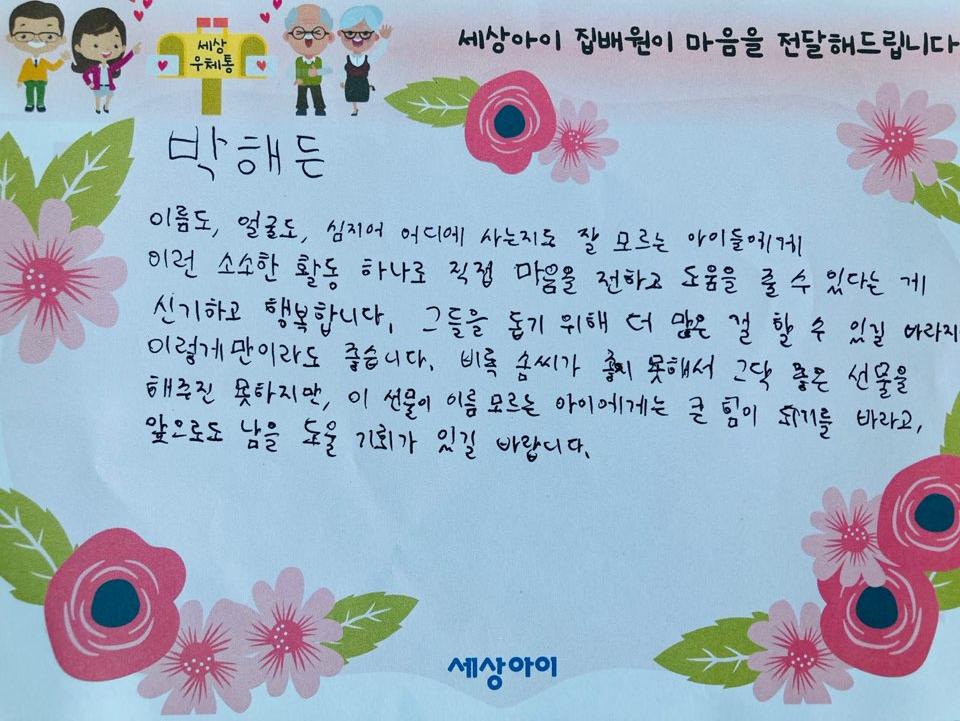 세상
우체통
세상아이 집배원이 마음을 전달해드립니다
박해든
이름도, 얼굴도, 심지어 어디에 사는지도 잘 모르는 아이들에게
이런 소소한 활동 하나로 직접 마음을 전하고 도움을 줄 수 있다는 게
신기하고 행복합니다. 그들을 돕기 위해 더 많은 걸 할 수 있길 바라지
이렇게만이라도 좋습니다. 비록 솜씨가 좋지 못해서 그닥 좋은 선물을
해주진 못하지만, 이 선물이 이름 모르는 아이에게는 큰 힘이 되기를 바라고,
앞으로도 남을 도울 기회가 있길 바랍니다.
세상아이